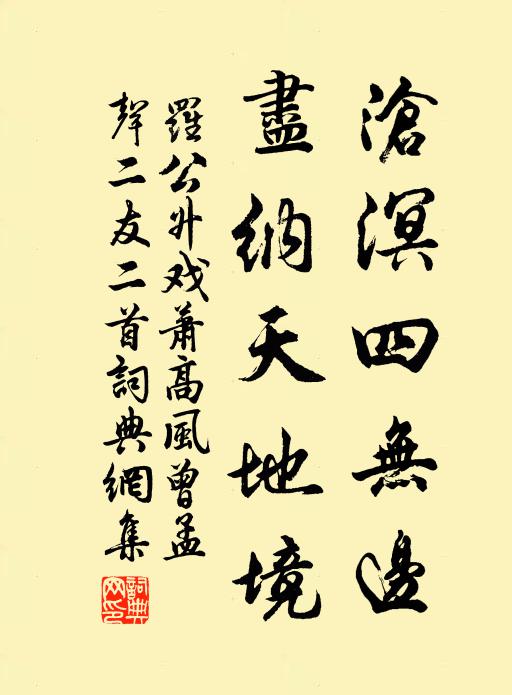 滄溟四無邊
盡納天地境
羅公升戏蕭高風曾孟
聲二友二首詞典網集
詞典网印